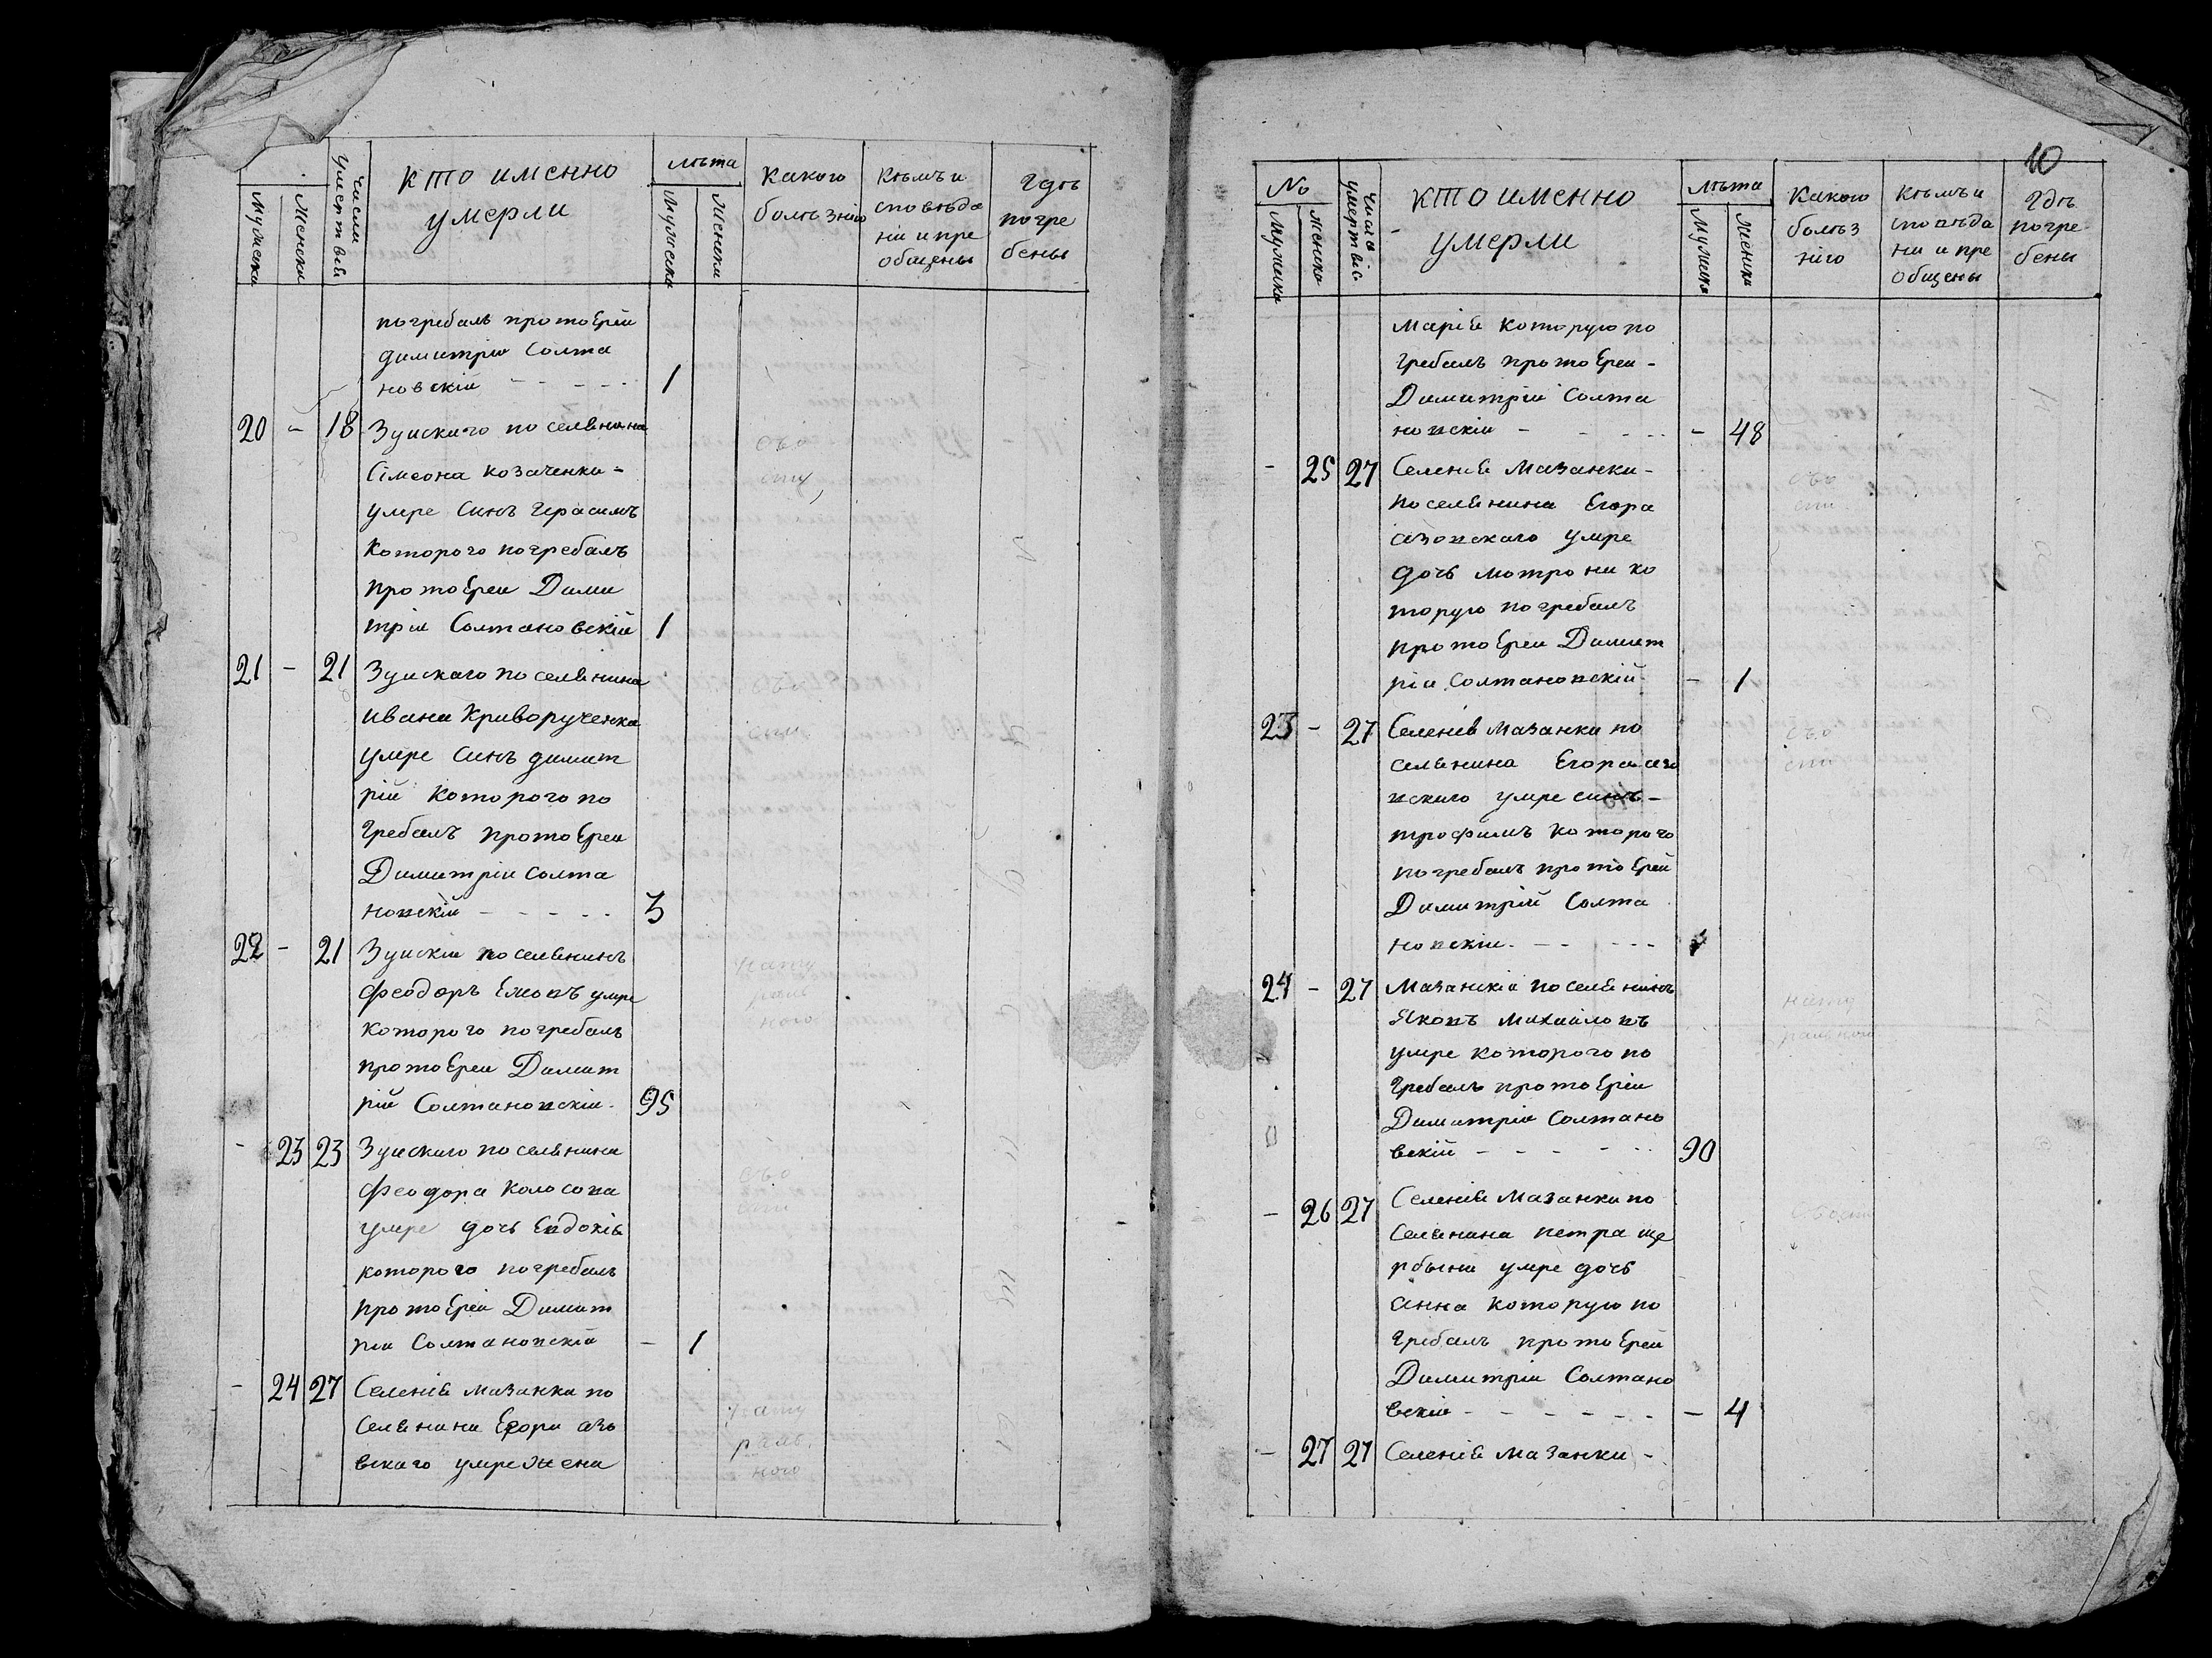 Мужеска
Женска
Числа умертвій
Кто именно
умерли
Лѣта
Мужеска
Женска
Какою
болѣзнію
Кѣмъ и
сповѣда
ни и пре
общены
Гдѣ
погре
бены
погребалъ протоЕрей
димитрій Солта
новскій - - - - - 1
20 - 18 Зуйскаго поселянина
Сімеона козаченка -
умре Синъ Герасимъ
которого погребалъ
протоЕрей Дими
трій Солтановскій 1
21 - 21 Зуйскаго поселянина
ивана Криворученка
умре Синъ димит
рій которого по
гребалъ протоЕрей
Димитрій Солта
новскій - - - - - 3
22 - 21 Зуйскій поселянинъ
Феодоръ умре
которого погребалъ
протоЕрей Димит
рій Солтановскій - 95
нату
раль
ного
- 23 23 Зуйскаго поселянина
Феодора Колосова
умре дочь Евдокія
которого погребалъ
протоЕрей Димит
рій Солтановскій - 1
- 24 27 Селенія мазанки по
селянина Егора азо
вскаго умре жена
нату
раль
ного
10
No
Мужеска
Женска
Числа умертвіс
Кто именно
умерли
Лѣта
Мужеска
Женска
Какою
болѣз
нію
Кѣмъ и
сповѣда
ни и пре
общены
Гдѣ
погре
бены
Марія которую по
гребалъ протоЕрей -
Димитрій Солта
новскій - - - - - - 48
- 25 27 Селенія Мазанки -
поселянина Егора
азовскаго умре
дочь мотрона ко
торую погребалъ
протоЕрей Димит
рій Солтановскій - - 1
23 - 27 Селенія Мазанки по
селянина Егора азо
вскаго умре синъ -
трофимъ которого
погребалъ протоЕрей
Димитрій Солта
новскій - - - - - -
24 - 27 Мазанскій поселянинъ
Яковъ Михайловъ
умре которого по
гребалъ протоЕрей
Димитрій Солтано
вскій - - - - - 90
нату
рального
- 26 27 Селенія Мазанки по
селянина петра ще
рбына умре дочь
анна которую по
гребалъ протоЕрей
Димитрій Солтано
вскій - - - - - - - 4
- 27 27 Селенія Мазанки -